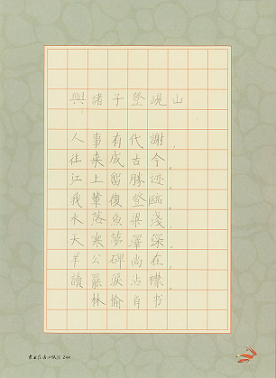 與諸子登峴山
人事有代謝，
往來成古今。
江山留勝迹，
我輩復登臨。
水落魚梁淺，
天寒夢澤深。
羊公碑尚在，
讀罷淚沾襟。
林愉自书